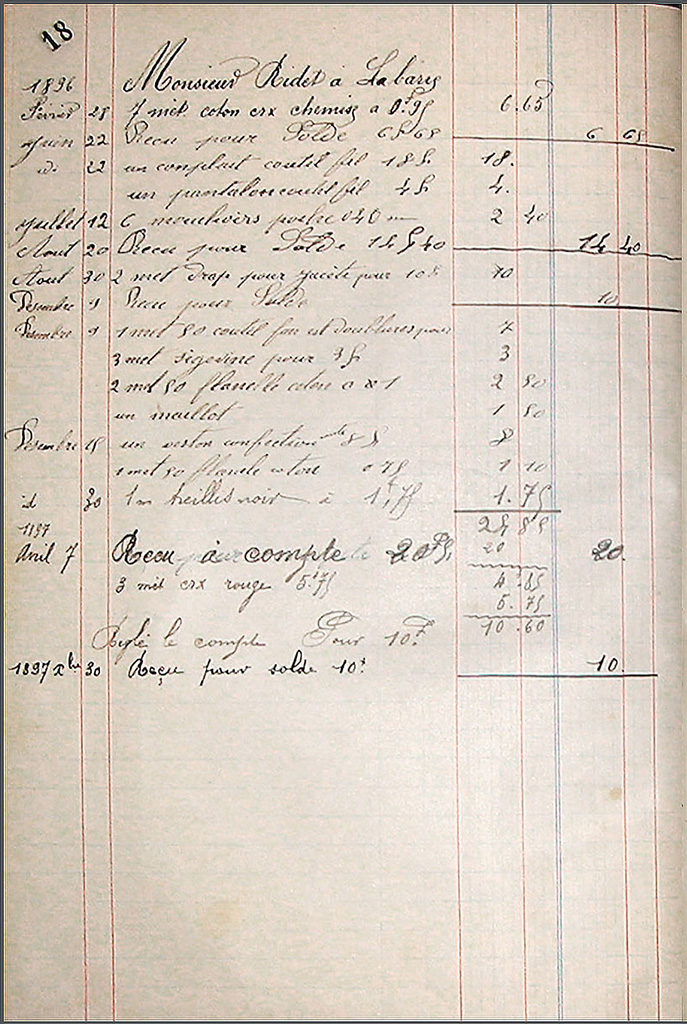 18
1896 Monsieur Ridet à Labarie
Février 28 7 met. coton crx chemise a 0f.95 6.65
Juin 22 Recu pour Solde 6f 65 6 65
id 22 un complait coutil fil 18f. 18.
un pantalon coutil fil 4f 4.
Juillet 12 6 mouchoirs poche 0 40 2 40
Aout 20 Recu pour Solde 14f 40 14 40
Aout 30 2 met drap pour pour 10f 10
Desembre 1 Recu pour Solde 10
Desembre 1 1 met 50 coutil fin et doublures pour 7
3 met pour 3f 3
2 met 50 flanelle coton a x 1 2 50
un maillot 1 50
Desembre 15 un veston confection 8f 8
1 met 50 flanelle coton 0 75 1 10
id 30 1m noir à 1f,75 1.75
24 85
1897
Avril 7 Recu à compte 20f. 20 20.
4.85
3 mèt crx rouge 5f.75 5.75
10.60
Réglé le compte Pour 10f
1897 Xbre 30 Reçu pour solde 10f 10.